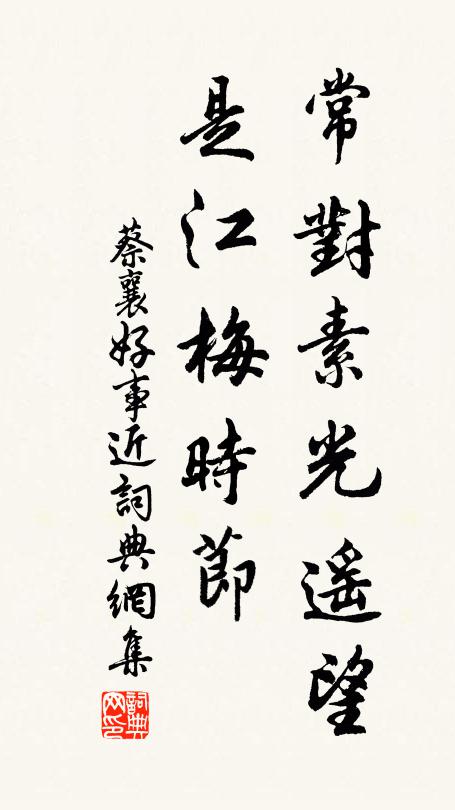 常對素光遥望
是江梅時節
蔡襄好事近詞典網集
詞典網印